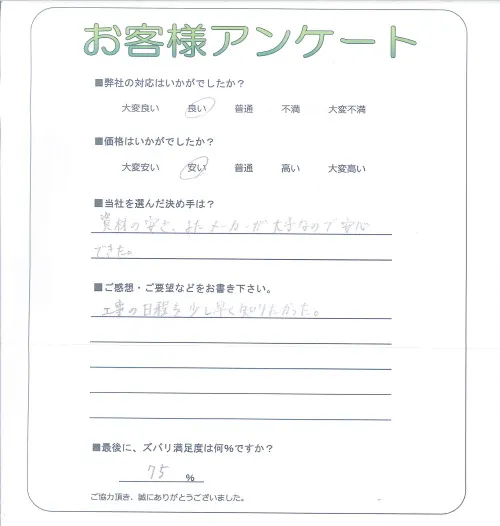 お客様アンケート
■弊社の対応はいかがでしたか？
大変良い 良い 普通 不満 大変不満
■価格はいかがでしたか？
大変安い 安い 普通 高い 大変高い
■当社を選んだ決め手は？
資材の安さ、またメーカーが大手なので安心
できた。
■ご感想・ご要望などをお書き下さい。
工事の日程を少し早く知りたかった。
■最後に、ズバリ満足度は何％ですか？
75 %
ご協力頂き、誠にありがとうございました。